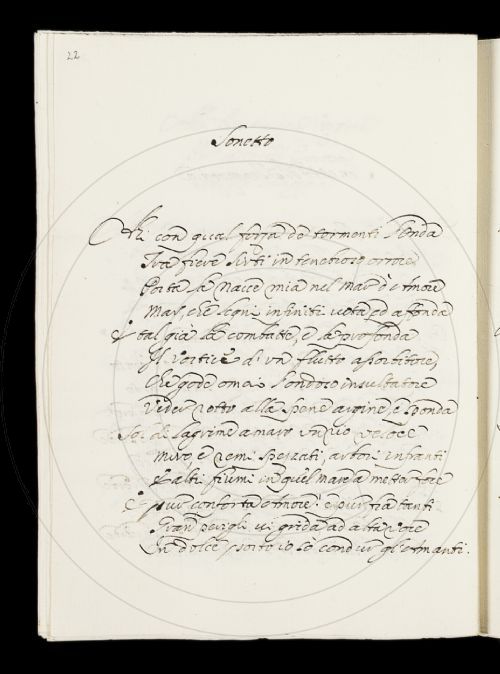 22
Sonetto
Ahi con qual forza de tormenti l'onda
Tra fiere Sirti in tenebroso orrore
Porta la nave mia nel mar d'Amore
Mar, che legni infiniti vota ed affonda
E tal già la combatte, e la profonda
Il vortice di un flutto assorbitore,
Che gode omai l'ondoso insultatore
Veder rotto alla spene argine, e sponda
Io di lagrime amaro un rio veloce
Miro, e remi spezzati, arbori infranti
Et altri fiumi in quel mare a metter foce
E pur conforta Amore! e pur fra tanti
Gran perigli vi grida ad alta voce
In dolce porto io so condur gl'Amanti.